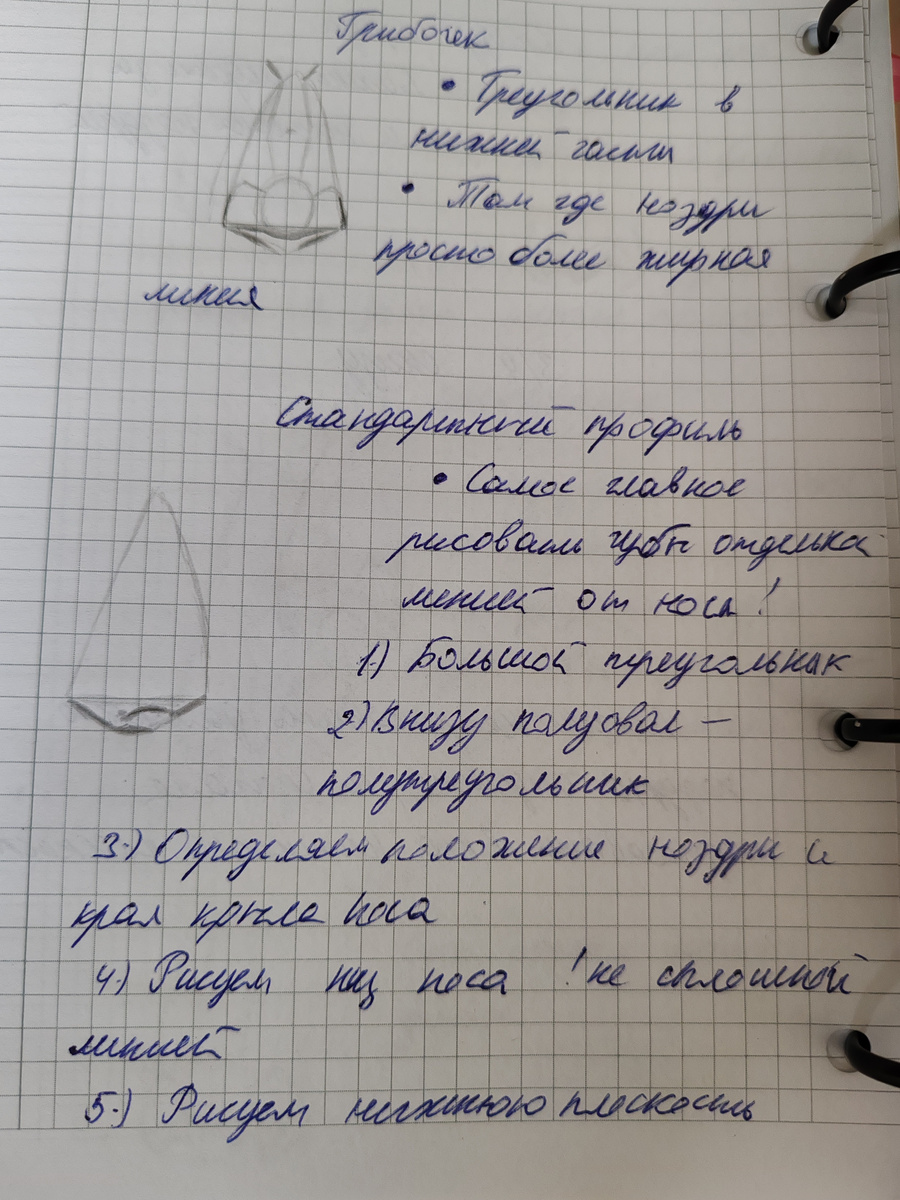 Грибочек
• Треугольник в
нижней части
• Там где ноздри
просто более жирная
линия
Стандартный профиль
• Самое главное
рисовать губы отдельно
линией от носа!
1.) Большой треугольник
2) Внизу полуовал –
полутреугольник
3.) Определяем положение ноздри и
края крыла носа
4.) Рисуем низ носа ! не сплошной
линией
5.) Рисуем нижнюю плоскость